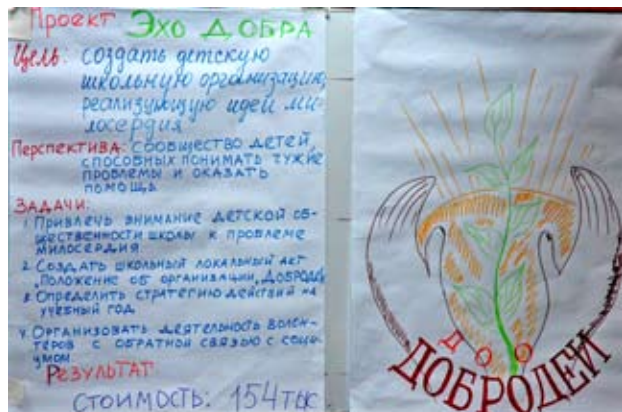 Проект ЭХО ДОБРА
Цель: создать детскую
школьную организацию,
реализующую идеи ми-
лосердия
Перспектива: сообщество детей,
способных понимать чужие
проблемы и оказать
помощь
Задачи:
1 Привлечь внимание детской об-
щественности школы к проблеме
милосердия
2 Создать школьный локальный акт
„Положение об организации „ДОБРОДЕЙ
3 Определить стратегию действий на
учебный год
4. Организовать деятельность волон-
теров с обратной связью с соци-
умом
Результат
СТОИМОСТЬ: 154 тыс
ДОО
ДОБРОДЕЙ